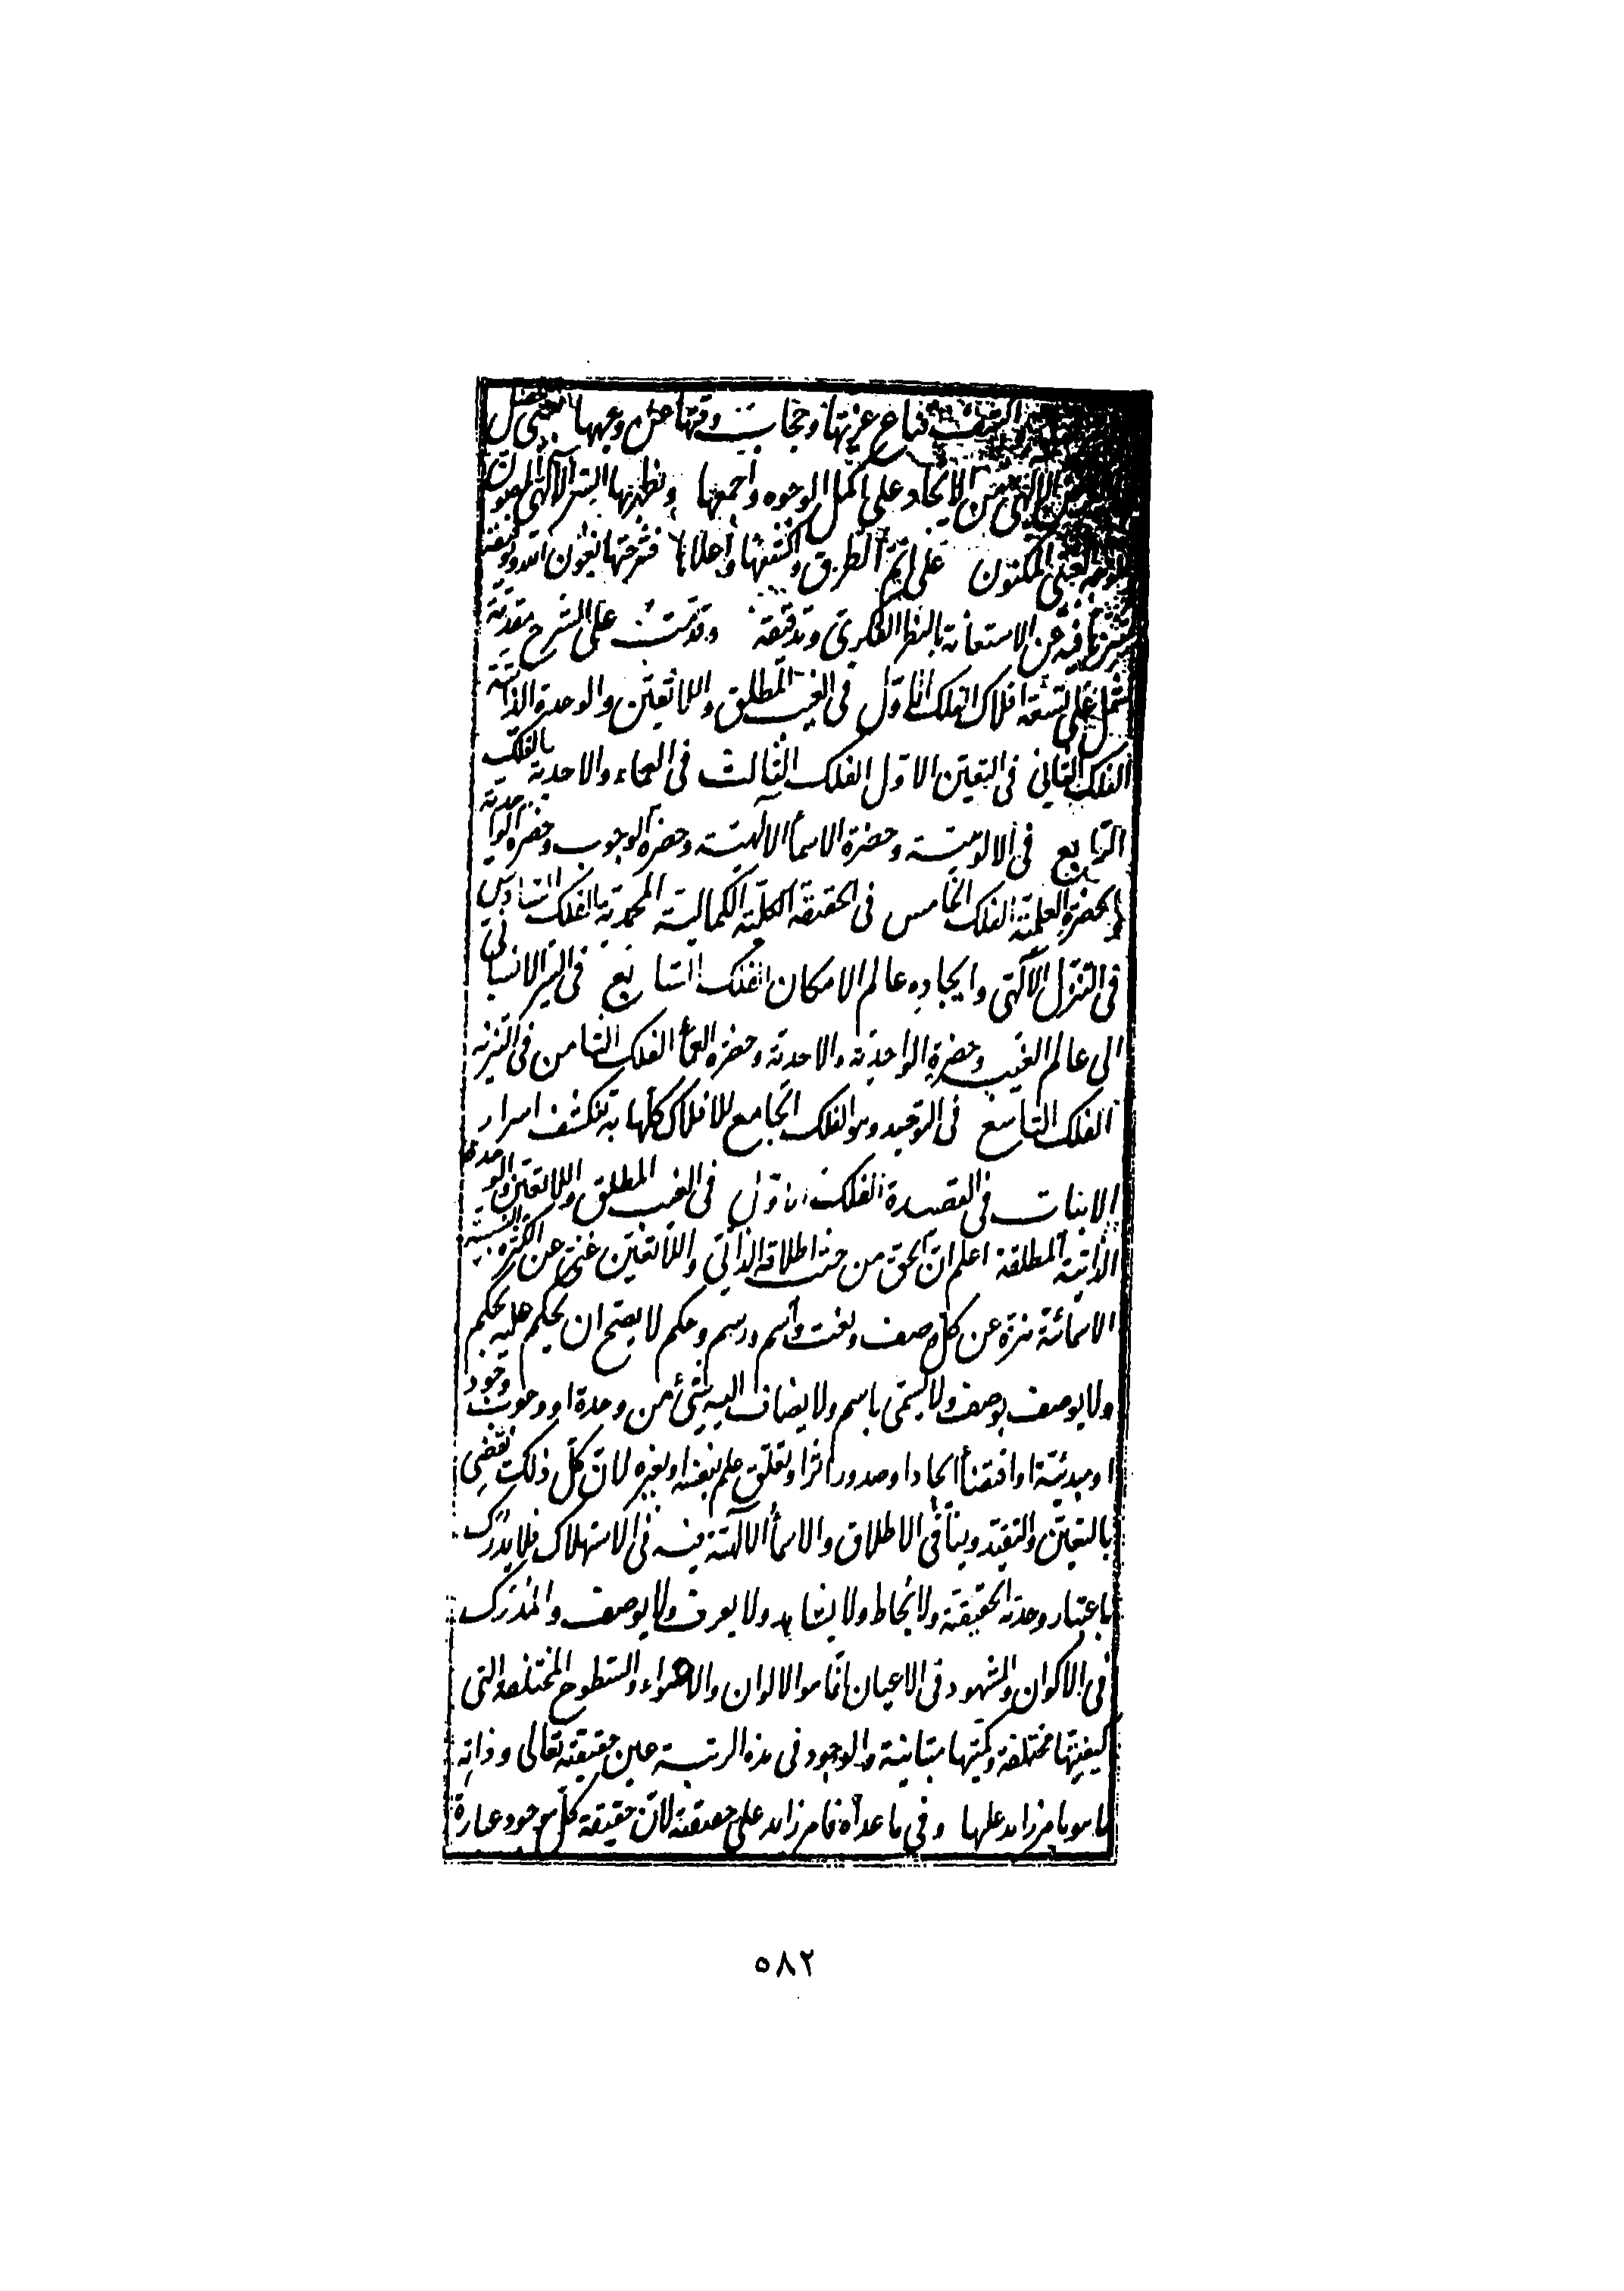 قناع عزتها وحجاب وقتها عن وجهها
الالهى من الايجاد على اكمل الوجوه واجمعها ونظهر بها السر الالهى المصون
الغيبى المكنون على اتم الطرق واكشفها واجلاها فشرحتها بعون الله وتوفيقه
فيه عن الاستعانة بالنظر الفكرى وتدقيقه وقدمت على الشرح مقدمة
تشتمل على تسعة افلاك الفلك الاول فى الغيب المطلق واللاتعين والوحدة الذاتية
الفلك الثانى فى التعين الاول الفلك الثالث فى العماء والاحدية الفلك
الرابع فى الالوهية وحضرة الاسماء الالهية وحضرة الوجوب وحضرة الواحدية
والحضرة العلمية الفلك الخامس فى الحقيقة الكلية الكمالية المحمدية الفلك السادس
فى التنزل الالهى وايجاده عالم الامكان الفلك السابع فى السير الانسانى
الى عالم الغيب وحضرة الواحدية والاحدية وحضرة العماء الفلك الثامن فى التنزيه
الفلك التاسع فى التوحيد وهو الفلك الجامع للافلاك كلها به تنكشف اسرار
الابيات فى القصيدة الفلك الاول فى الغيب المطلق واللاتعين والوحدة
الذاتية المطلقة اعلم ان الحق من حيث اطلاقه الذاتى واللاتعين غنى عن الكثرة النسبية
الاسمائية منزه عن كل وصف ونعت واسم ورسم وحكم لا يصح ان يحكم عليه بحكم
ولا يوصف بوصف ولا يسمى باسم ولا يضاف اليه شىء من وحدة او وجوب وجود
او مبدئية او اقتضاء ايجاد او صدور اثر او تعلق علم بنفسه او بغيره لان كل ذلك يقضى
بالتعين والتقيد وينافى الاطلاق والاسماء الالهية فيه فى الاستهلاك فلا يدرك
باعتبار وحدته الحقيقية ولا يحاط ولا يشاهد ولا يعرف ولا يوصف والمدرك
فى الاكوان والمشهود فى الاعيان انما هو الالوان والاضواء والسطوح المختلفة التى
كيفيتها مختلفة وكميتها متباينة والوجود فى هذه الرتبة عين حقيقته تعالى وذاته
ما هو بامر زايد عليها وفى ما عداه فامر زايد على حقيقته لان حقيقة كل موجود عبارة
٥٨٢